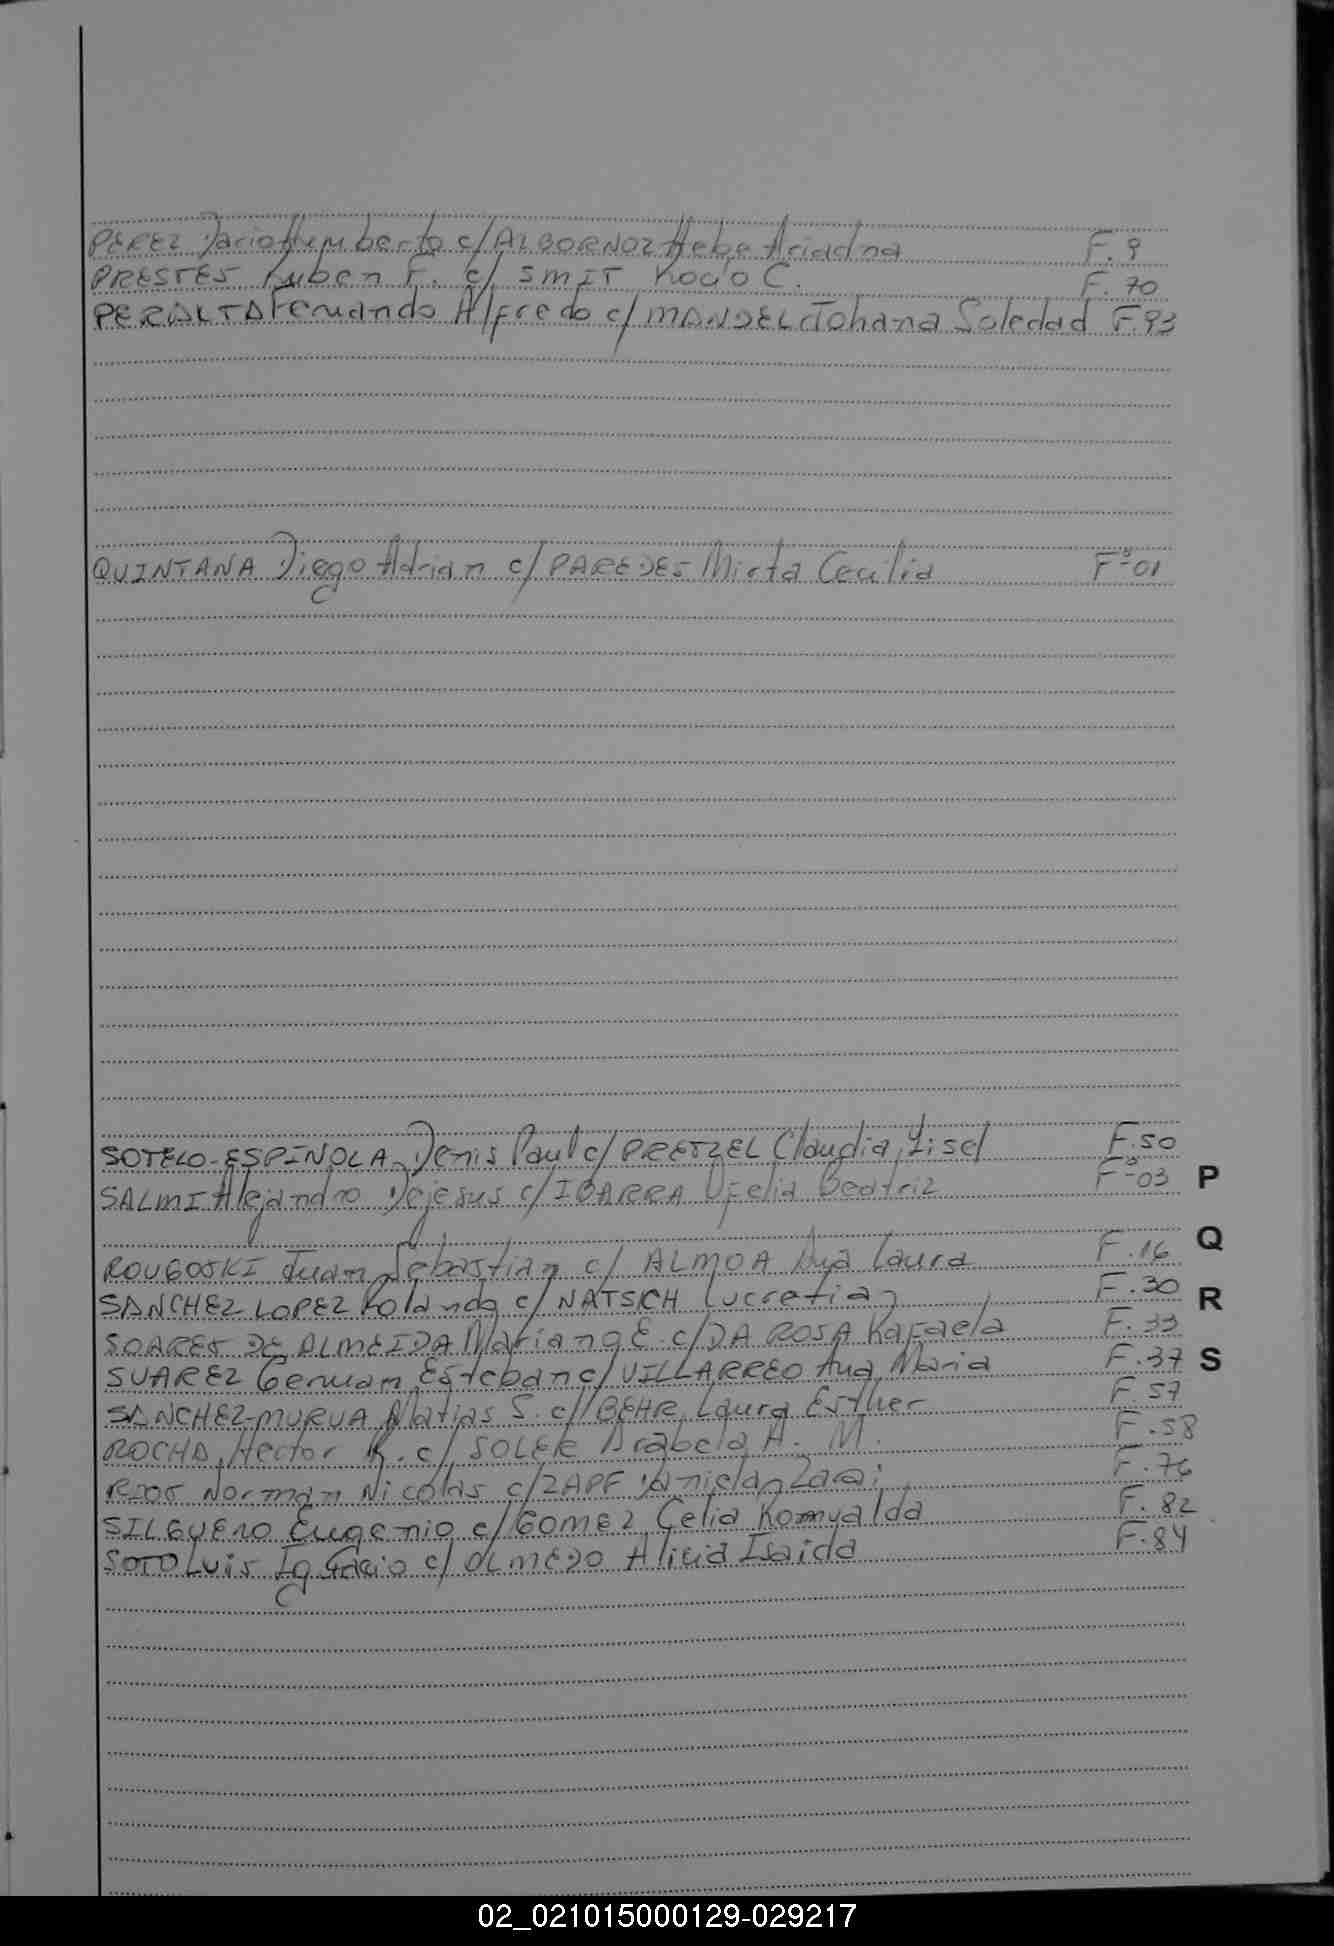 PEREZ Dario Humberto c/ ALBORNOZ Hebe Ariadna F. 9
PRESTES Ruben F. c/ SMIT Rocio C. F. 70
PERALTA Fernando Alfredo c/ MANDEL Johana Soledad F.93
QUINTANA Diego Adrian c/ PAREDES Mirta Cecilia Fº 01
SOTELO-ESPINOLA, Denis Paul c/ PRETZEL Claudia Lisel F.50
SALMI Alejandro Dejesus c/ IBARRA Ofelia Beatriz Fº 03
P
ROUGOSKI Juan Sebastian c/ ALMOA Ana Laura F.16
Q
SANCHEZ LOPEZ Rolando c/ NATSICH Lucretia F.30
R
SOARES DE ALMEIDA Mariang E. c/ DA ROSA Rafaela F.33
SUAREZ German Esteban c/ VILLARREO Ana Maria F.37
S
SANCHEZ-MURUA Matias S. c/ BEHR, Laura Esther F.57
ROCHA, Hector R. c/ SOLER Arabela A. M. F.58
RIOS Norman Nicolas c/ ZAPF F.76
SILGUERO Eugenio c/ GOMEZ Celia Romualda F. 82
SOTO Luis Ignacio c/ OLMEDO Alicia Isaida F.84
02_021015000129-029217